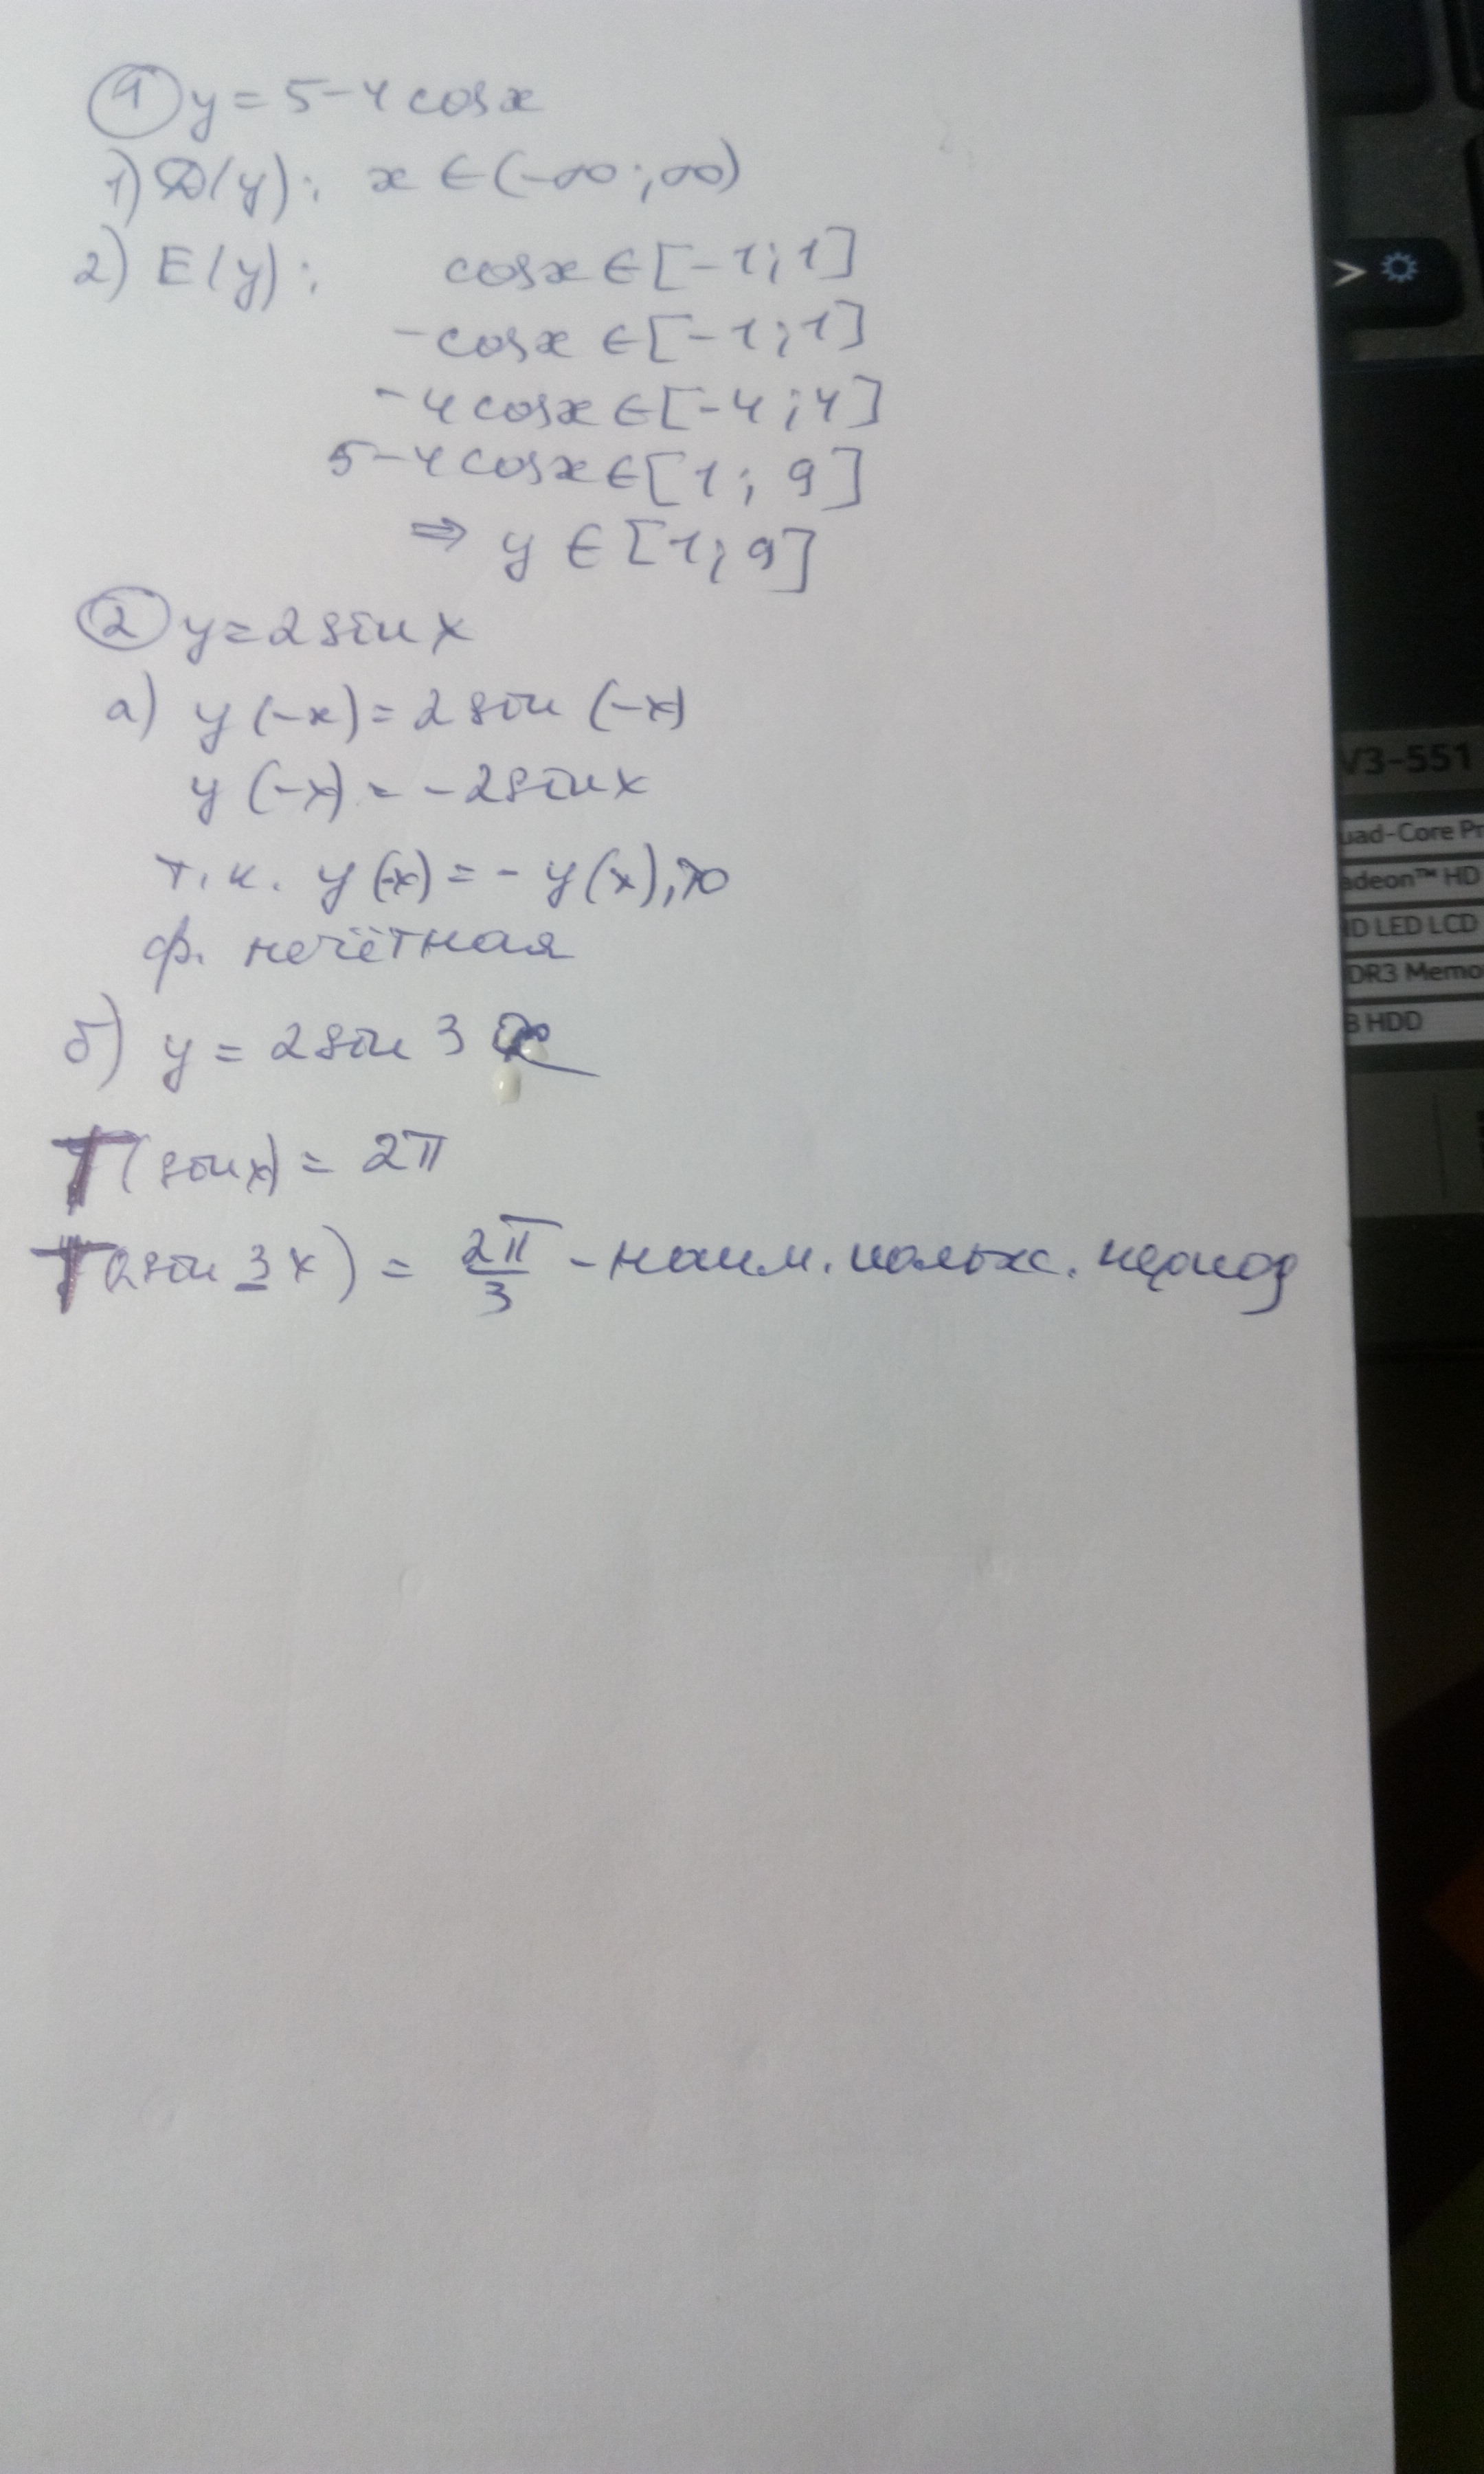 ① y = 5-4 cosx
1) D(y): x ∈ (-∞; ∞)
2) E(y): cosx ∈ [-1; 1]
-cosx ∈ [-1; 1]
-4 cosx ∈ [-4; 4]
5-4 cosx ∈ [1; 9]
⇒ y ∈ [1; 9]
② y = 2 sin x
а) y (-x) = 2 sin (-x)
y (-x) = -2 sin x
т.к. y(-x) = - y(x), то
ф. нечётная
б) y = 2 sin 3x
T(sin x) = 2π
T(2 sin 3x) = 2π/3 - наим. полож. период
V3-551
uad-Core Pr
adeon™ HD
D LED LCD
DR3 Memo
B HDD